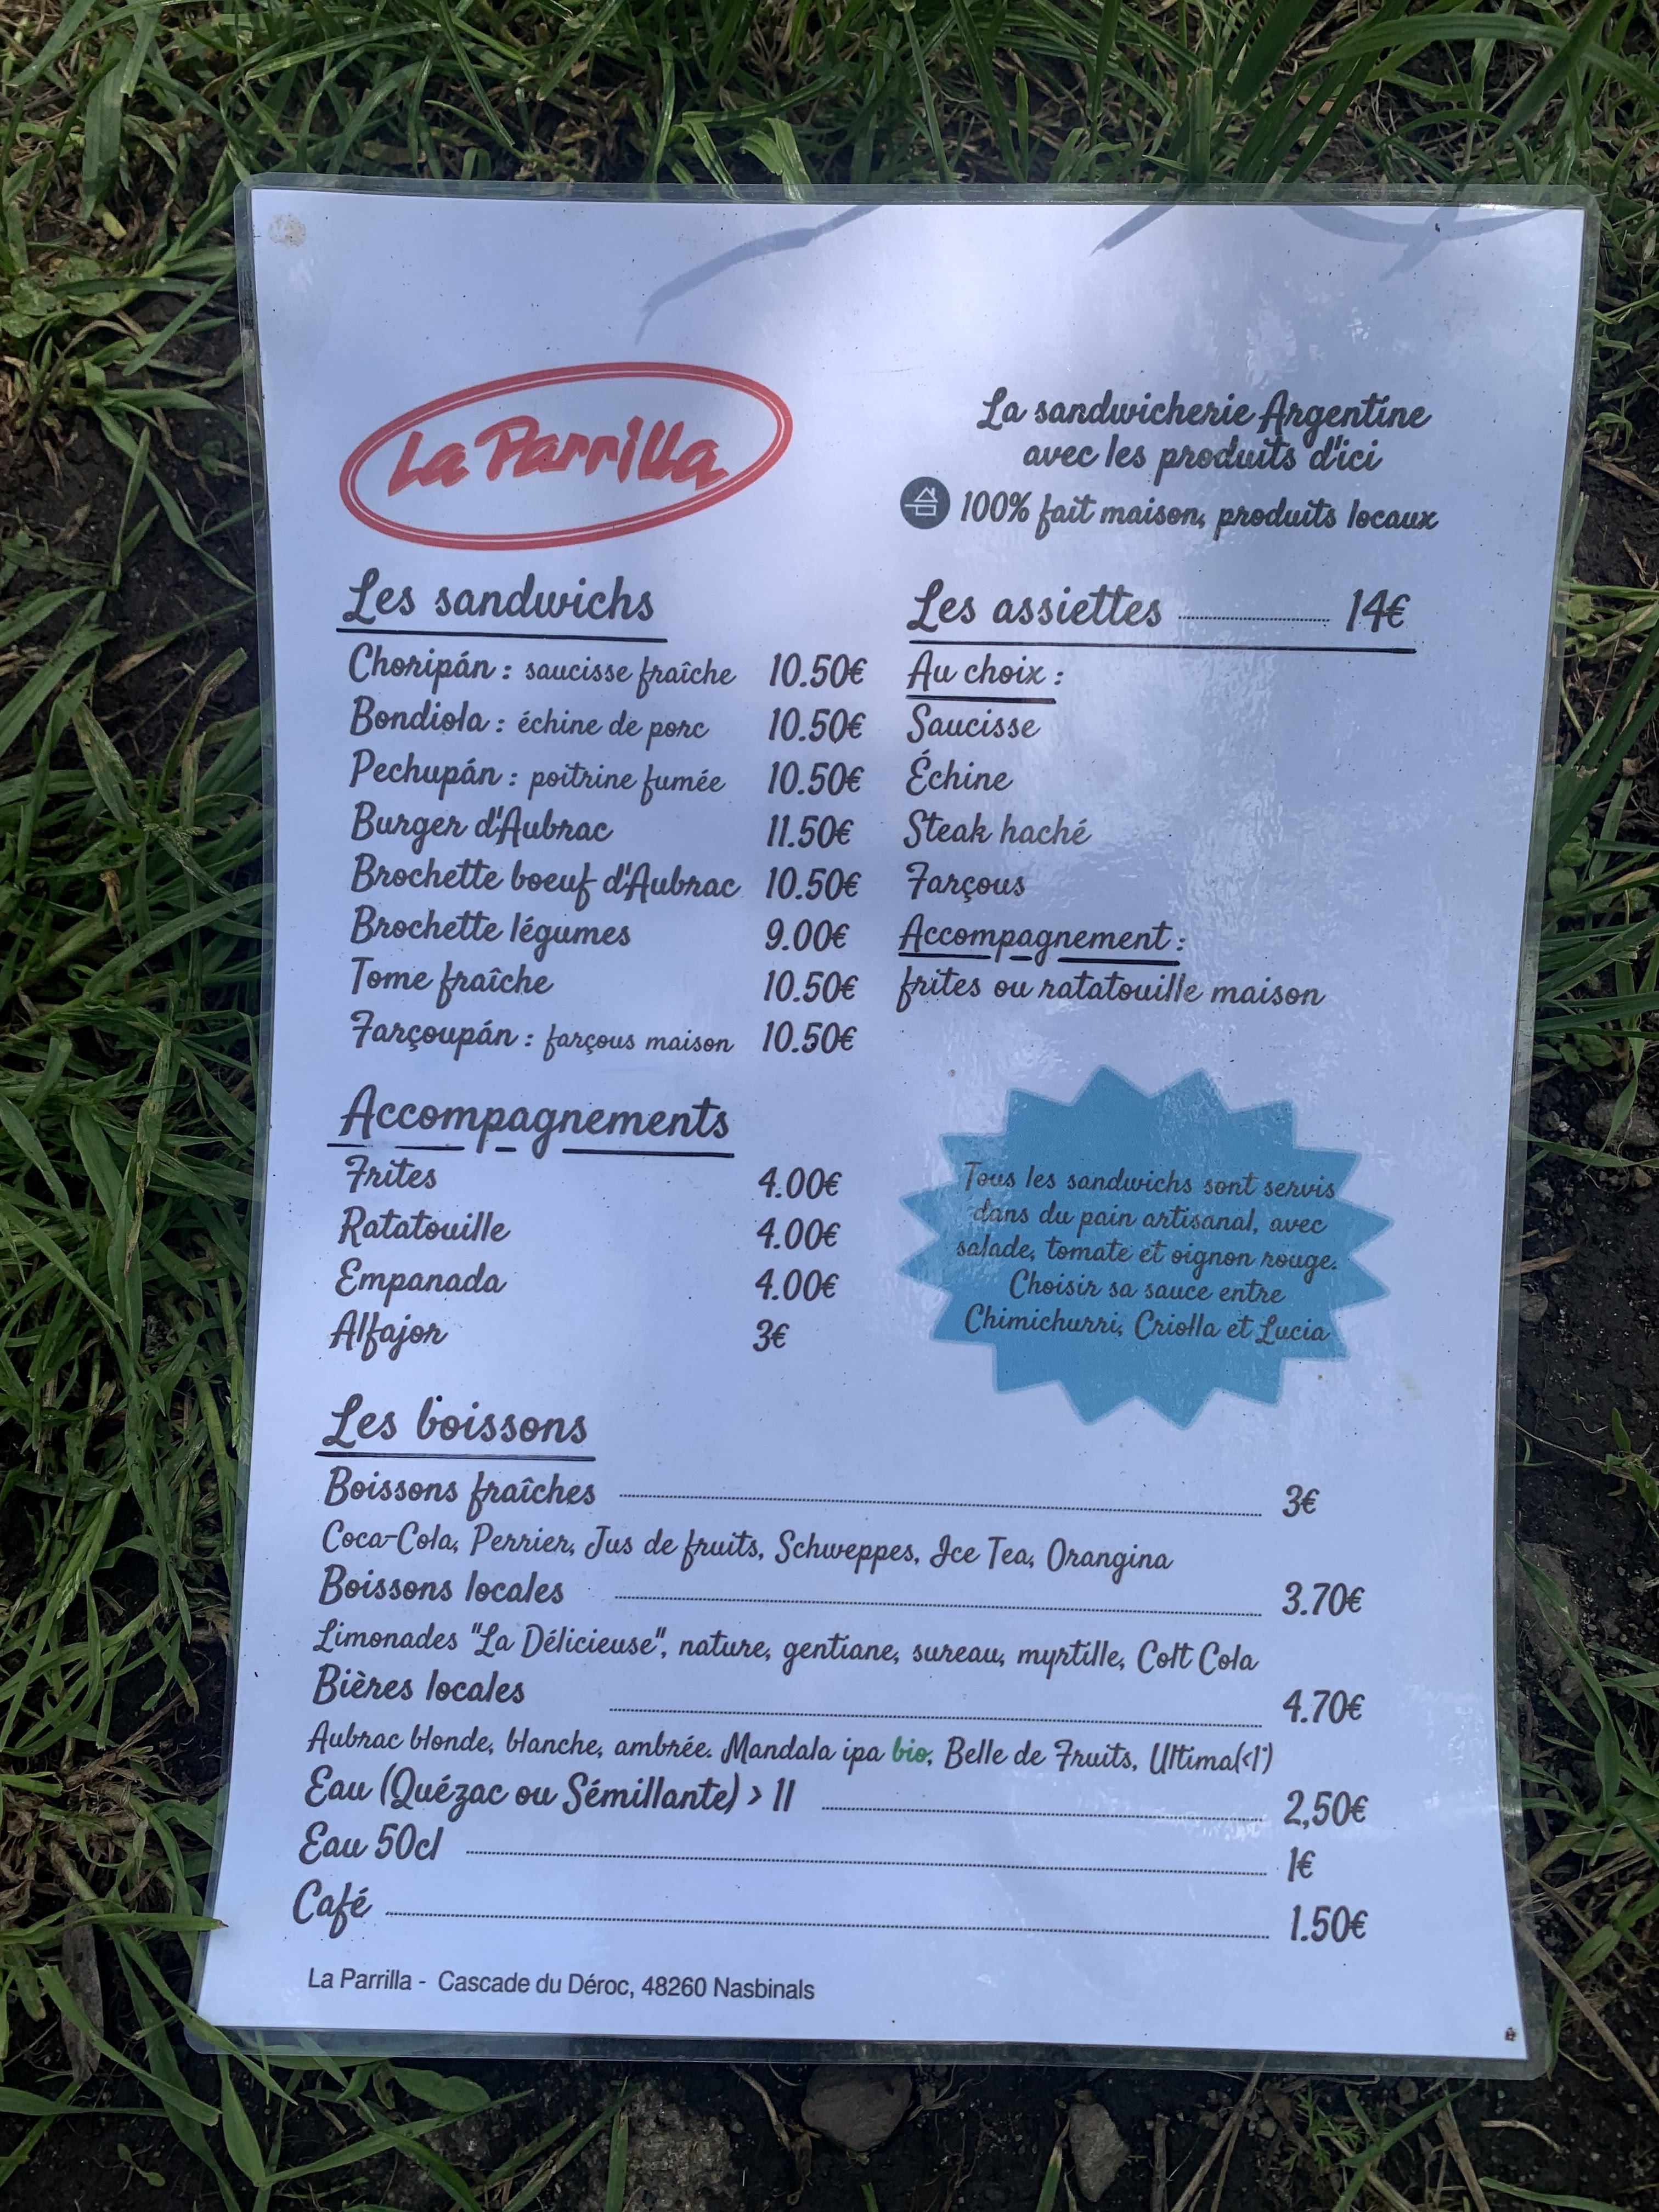 La Parrilla
La sandwicherie Argentine
avec les produits d'ici
100% fait maison, produits locaux
Les sandwichs
Choripán : saucisse fraîche 10.50€
Bondiola : échine de porc 10.50€
Pechupán : poitrine fumée 10.50€
Burger d'Aubrac 11.50€
Brochette boeuf d'Aubrac 10.50€
Brochette légumes 9.00€
Tome fraîche 10.50€
Farçoupán : farçous maison 10.50€
Les assiettes 14€
Au choix :
Saucisse
Échine
Steak haché
Farçous
Accompagnement :
frites ou ratatouille maison
Accompagnements
Frites 4.00€
Ratatouille 4.00€
Empanada 4.00€
Alfajor 3€
Tous les sandwichs sont servis
dans du pain artisanal, avec
salade, tomate et oignon rouge.
Choisir sa sauce entre
Chimichurri, Criolla et Lucia
Les boissons
Boissons fraîches 3€
Coca-Cola, Perrier, Jus de fruits, Schweppes, Ice Tea, Orangina
Boissons locales 3.70€
Limonades "La Délicieuse", nature, gentiane, sureau, myrtille, Colt Cola
Bières locales 4.70€
Aubrac blonde, blanche, ambrée. Mandala ipa bio, Belle de Fruits, Ultima(<1°)
Eau (Quézac ou Sémillante) > 1l 2,50€
Eau 50cl 1€
Café 1.50€
La Parrilla - Cascade du Déroc, 48260 Nasbinals